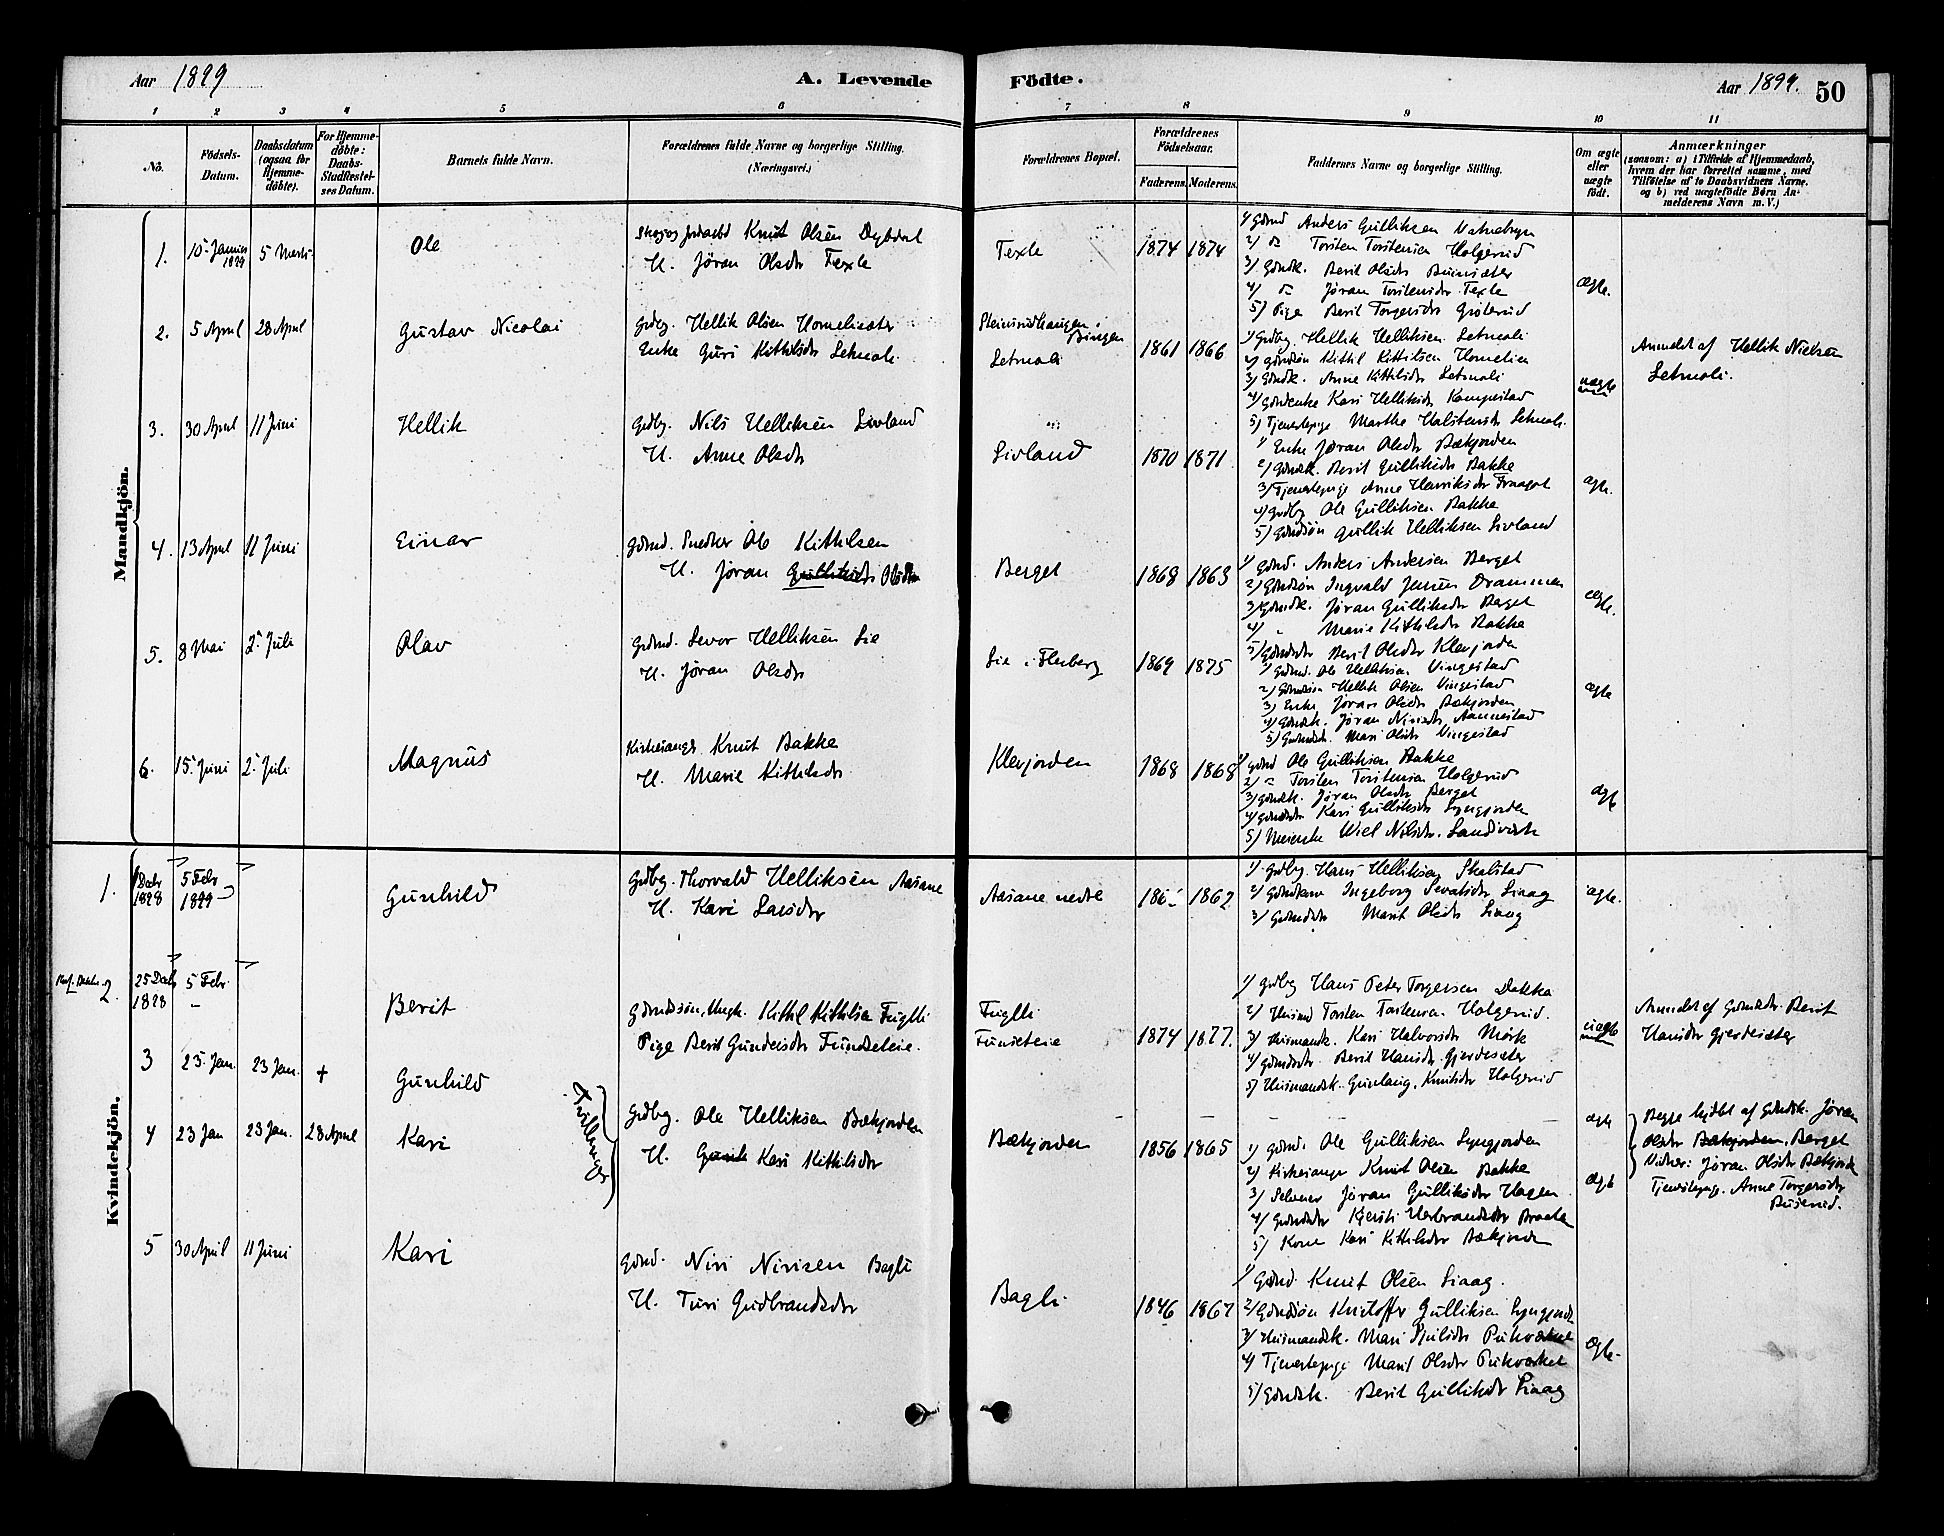 Aar 1899
A. Levende
Födte.
Aar 1899.
50
1 2 3 4 5 6 7 8 9 10 11
No.
Födsels-
Datum.
Daabsdatum
(ogsaa for
Hjemme-
döbte).
For Hjemme-
döbte:
Daabs-
Stadfæstel-
ses Datum.
Barnets fulde Navn.
Forældrenes fulde Navne og borgerlige Stilling.
(Næringsvei.)
Forældrenes Bopæl.
Forældrenes
Födselsaar.
Faderens. Moderens.
Faddernes Navne og borgerlige Stilling.
Om ægte
eller
uægte
födt.
Anmærkninger
(saasom: a) i Tilfælde af Hjemmedaab,
hvem der har forrettet samme, med
Tilföielse af to Daabsvidners Navne,
og b) ved uægtefödte Börn An-
melderens Navn m. V.)
Mandkjön.
1. 10 Januar 1899 5 Marts
Ole
Knut Olsen Dybdal
H. Jøran Olsdr Texle
Texle
1874 1874
1) Gdmd Anders Gulliksen
2) Do Torsten Torstensen Holgerud
3) Gdmdk. Berit Olsdr
4) Do Jøran Torstensdr Texle
5) Pige Berit Torgersdr
ægte.
2. 5 April 28 April
Gustav Nicolai
Gdbg. Hellik Olsen
Enke Guri Kittilsdr Letmoli
Letmoli
1861 1866
1) Gdbg. Hellik Helliksen Letmoli
2) Gdmdsøn Kittil Kittilsen
3) Gdmdk. Anne Kittilsdr Letmoli
4) Gdmdenke Kari Helliksdr Kompestad
5) Tjenestepige Marthe Halstensdr Letmoli.
uægte
Anmeldt af Hellik Nielsen
Letmoli.
3. 30 April 11 Juni
Hellik
Gdbg. Nils Helliksen Livland
H. Anne Olsdr
Livland
1870 1871
1) Enke Jøran Olsdr Bækjorden
2) Gdmdk. Berit Gulliksdr Bakke
3) Tjenestepige Anne Henriksdr
4) Gdbg Ole Gulliksen Bakke
5) Gdmdsøn Gullik Helliksen Livland
ægte.
4. 13 April 11 Juni
Einar
Gdmd. Snedker Ole Kittilsen
H. Jøran Gulliksdr Olsdr
Berget
1868 1863
1) Gdmd. Anders Andersen Berget
2) Gdmdsøn Ingvald Jensen Drammen
3) Gdmdk. Jøran Gulliksdr Berget
4) " Marie Kittilsdr Bakke
5) Gdmdsdr Berit Olsdr Klevjorden
ægte.
5. 8 Mai 2 Juli
Olav
Gdmd. Levor Helliksen Lie
H. Jøran Olsdr
Lie i Flesberg
1869 1875
1) Gdmd. Ole Helliksen Vingestad
2) Gdmdsøn Hellik Olsen Vingestad
3) Enke Jøran Olsdr Bækjorden
4) Gdmdk. Jøran Nirisdr Aannestad
5) Gdmdsdr. Mari Olsdr Vingestad
ægte
6. 15 Juni 2 Juli
Magnus
Kirkesanger Knut Bakke
H. Marie Kittilsdr
Klevjorden
1868 1868
1) Gdmd Ole Gulliksen Bakke
2) Do Torsten Torstensen Holgerud
3) Gdmdk. Jøran Olsdr Berget
4) Gdmdsdr Kari Gulliksdr Lyngjorden
5) Meierske Nilsdr. Landsværk
ægte
Kvindekjön.
1. Decbr 1898 5 Febr 1899
Gunhild
Gdbg. Thorvald Helliksen Aasane
H. Kari Larsdr
Aasane nedre
1862
1) Gdbg Hans Helliksen Skalstad
2) Gdmdkone Ingeborg Liaag
3) Gdmdsdr Marit Olsdr Liaag
ægte.
2. 25 Decbr 1898 5 Febr
Berit
Gdmdssøn, Ungk. Kittil Kittilsen Fuglli
Pige Berit Gundersdr Funseteie.
Fuglli
Funseteie
1874 1877.
1) Gdbg Hans Peter Torgersen Bakke
2) Husmd Torsten Torstensen Holgerud.
3) Husmandsk. Kari Halvorsdr Mørk
4) Gdmdsdr. Berit Hansdr Gjerdesæter
5) Husmandsk. Gunlaug Knutsdr Holgerud
uægte
Anmeldt af Gdmdsdr. Berit
Hansdr Gjerdesæter
3 23. Jan. 23 Jan. +
Gunhild
Tvillinger
4 23 Jan 23 Jan. 28 April
Kari
Gdbg. Ole Helliksen Bækjorden
H. Kari Kittilsdr
Bækjorden
1856 1865
1) Gdmd. Ole Gulliksen Lyngjorden
2) Kirkesanger Knut Olsen Bakke
3) Jøran Gulliksdr Hagen
4) Gdmdsdr Kjersti Herbrandsdr Braata
5) Kone Kari Kittilsdr Bækjorden
ægte
ægte
Begge hjdbt af Gdmdk. Jøran
Olsdr Bækjorden, Berget
Vidner: Jøran Olsdr Bækjord
Tjenestepige Anne Torgersdr
5 30 April 11 Juni
Kari
Gdmd. Niri Nirisen Bagli
H. Turi Gudbrandsdr
Bagli
1846 1867
1) Gdmd. Knut Olsen Liaag.
2) Gdmdsøn Kristoffer Gulliksen Lyngjord.
3) Husmandsk. Mari Pukværket
4) Tjenestepige Marit Olsdr Pukværket
5) Gdmdsk. Berit Gulliksdr Liaag
ægte.